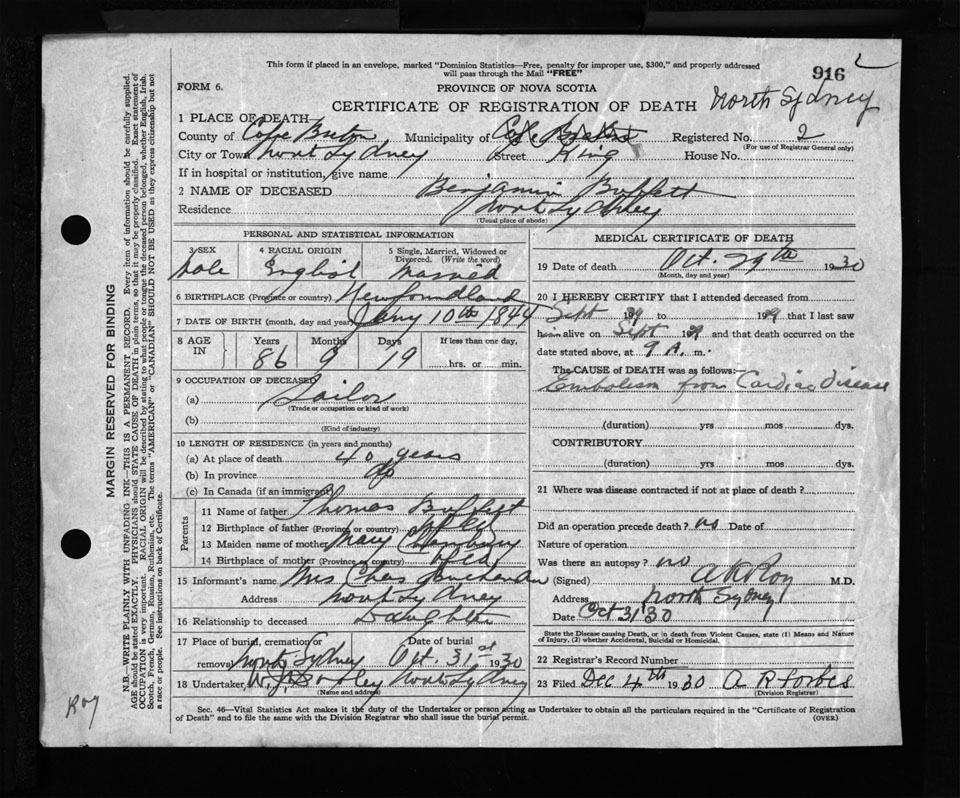 This form if placed in an envelope, marked "Dominion Statistics—Free, penalty for improper use, $300," and properly addressed
will pass through the Mail "FREE"
916
FORM 6.
PROVINCE OF NOVA SCOTIA
CERTIFICATE OF REGISTRATION OF DEATH North Sydney
1 PLACE OF DEATH
County of Cape Breton Municipality of Cape Breton Registered No. 2
(For use of Registrar General only)
City or Town North Sydney Street King House No.
If in hospital or institution, give name
2 NAME OF DECEASED Benjamin Buffett
Residence North Sydney
(Usual place of abode)
PERSONAL AND STATISTICAL INFORMATION
3 SEX 4 RACIAL ORIGIN 5 Single, Married, Widowed or Divorced. (Write the word)
Male English Married
6 BIRTHPLACE (Province or country) Newfoundland
7 DATE OF BIRTH (month, day and year) Jany 10th 1844
8 AGE IN Years Months Days If less than one day,
86 9 19 hrs. or min.
9 OCCUPATION OF DECEASED
(a) Sailor
(Trade or occupation or kind of work)
(b)
(Kind of industry)
10 LENGTH OF RESIDENCE (in years and months)
(a) At place of death 40 years
(b) In province do
(c) In Canada (if an immigrant)
Parents
11 Name of father Thomas Buffett
12 Birthplace of father (Province or country) Nfld
13 Maiden name of mother Mary
14 Birthplace of mother (Province or country) Nfld
15 Informant's name Mrs Chas
Address North Sydney
16 Relationship to deceased Daughter
17 Place of burial, cremation or removal North Sydney Date of burial Oct. 31st 1930
18 Undertaker W. J. Dooley North Sydney
(Name and address)
MEDICAL CERTIFICATE OF DEATH
19 Date of death Oct. 29th 1930
(Month, day and year)
20 I HEREBY CERTIFY that I attended deceased from
Sept 1929 to 1929 that I last saw
him alive on Sept 1929 and that death occurred on the
date stated above, at 9 A. m.
The CAUSE OF DEATH was as follows:—
Embolism from Cardiac disease
(duration) yrs mos dys.
CONTRIBUTORY
(duration) yrs mos dys.
21 Where was disease contracted if not at place of death?
Did an operation precede death? no Date of
Nature of operation
Was there an autopsy? no
(Signed) A R Roy M.D.
Address North Sydney
Date Oct 31 30
State the Disease causing Death, or in death from Violent Causes, state (1) Means and Nature
of Injury, (2) whether Accidental, Suicidal or Homicidal.
22 Registrar's Record Number
23 Filed Dec 4th 1930 A R Forbes
(Division Registrar)
Sec. 46—Vital Statistics Act makes it the duty of the Undertaker or person acting as Undertaker to obtain all the particulars required in the "Certificate of Registration
of Death" and to file the same with the Division Registrar who shall issue the burial permit.
(OVER)
MARGIN RESERVED FOR BINDING
N.B.—WRITE PLAINLY WITH UNFADING INK—THIS IS A PERMANENT RECORD. Every item of information should be carefully supplied.
AGE should be stated EXACTLY. PHYSICIANS should STATE CAUSE OF DEATH in plain terms, so that it may be properly classified. Exact statement of
OCCUPATION is very important. RACIAL ORIGIN will be described by stating to what people or tongue the deceased person belonged, whether English, Irish,
Scotch, French, German, Russian, Ruthenian, etc. The terms "AMERICAN" or "CANADIAN" SHOULD NOT BE USED as they express citizenship but not
a race or people. See instructions on back of Certificate.
Roy